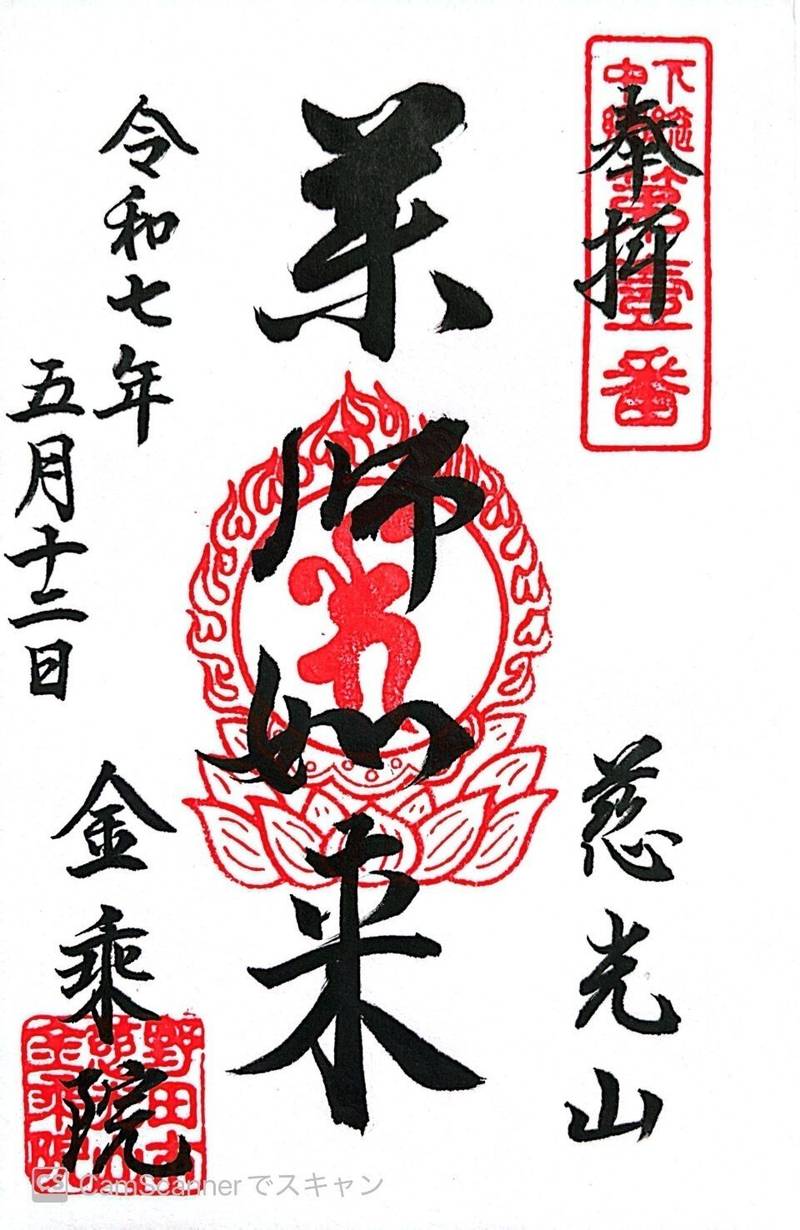 奉拝
第壹番
慈光山
薬師如来
令和七年
五月十二日
金乗院
CamScannerでスキャン